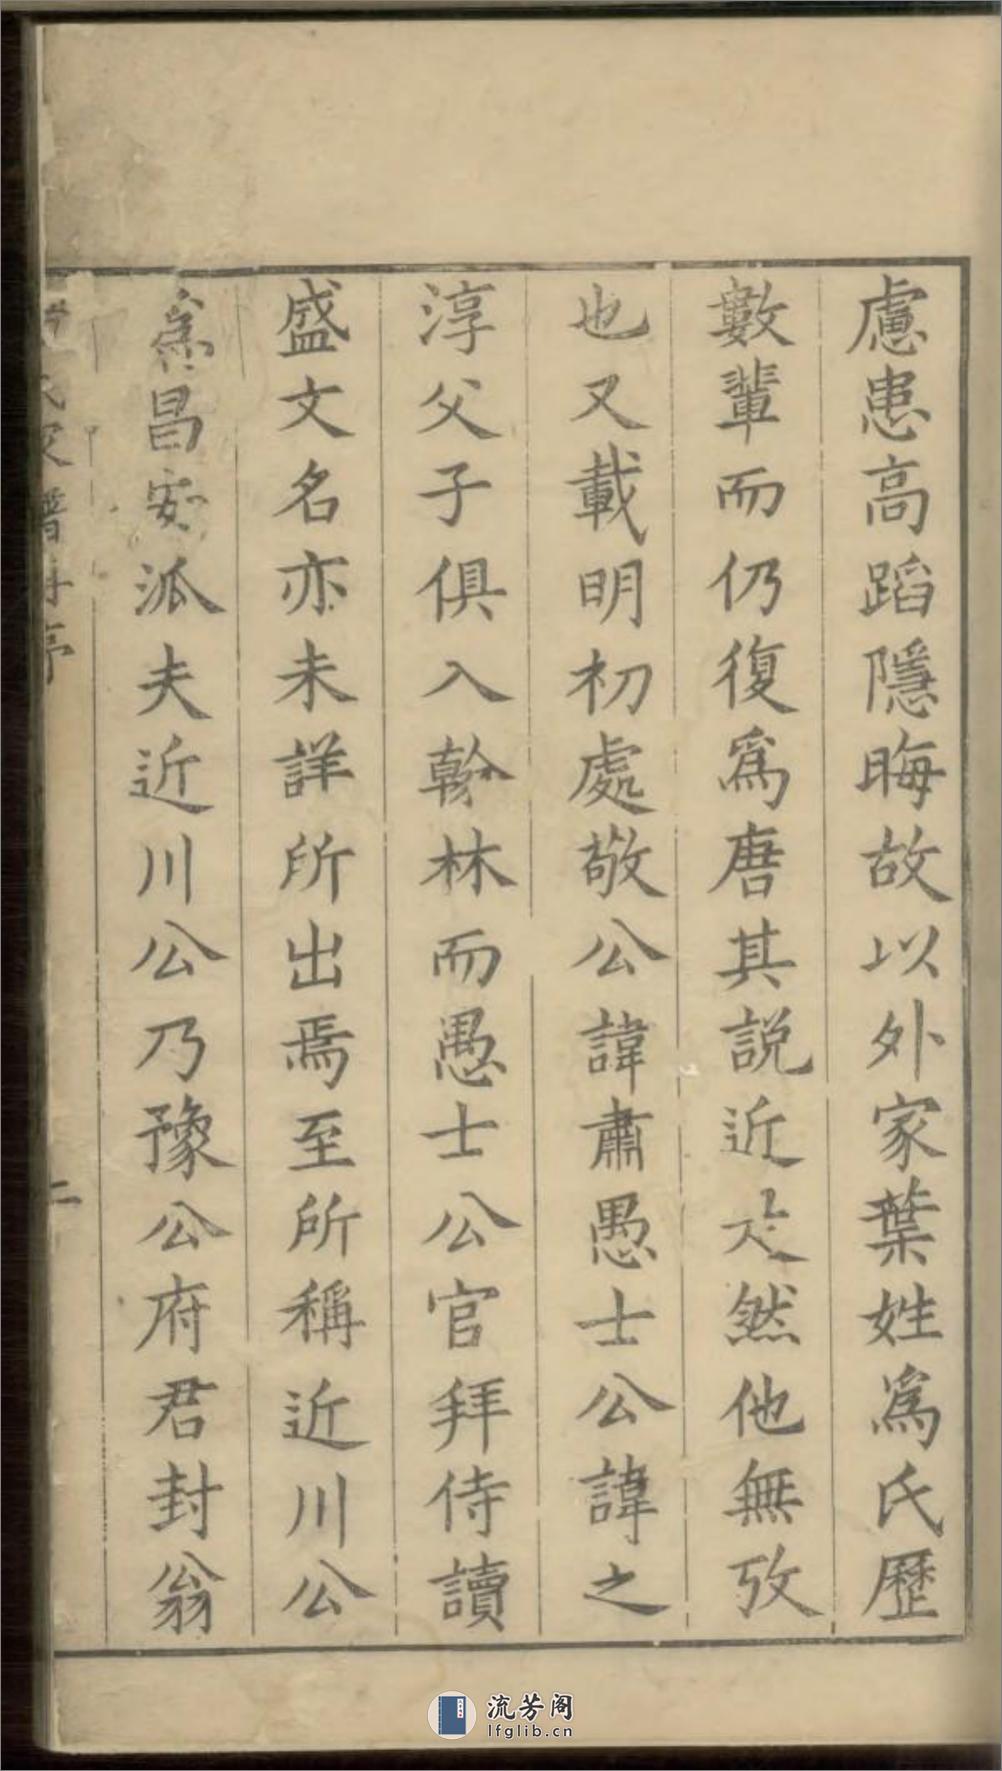 慮患高蹈隱晦故以外家葉姓爲氏歷
數輩而仍復爲唐其說近是然他無攷
也又載明初處敬公諱肅愚士公諱之
淳父子俱入翰林而愚士公官拜侍讀
盛文名亦未詳所出焉至所稱近川公
爲昌安派夫近川公乃豫公府君封翁
氏家譜序
二
流芳阁
lfglib.cn